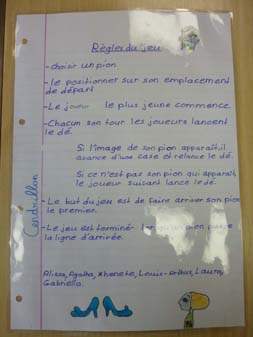 Règles du jeu
- choisir un pion
- le positionner sur son emplacement
de départ
- Le joueur le plus jeune commence.
- Chacun son tour les joueurs lancent
le dé.
Si l'image de son pion apparaît, il
avance d'une case et relance le dé.
Si ce n'est pas son pion qui apparaît
le joueur suivant lance le dé.
- Le but du jeu est de faire arriver son pion
le premier.
- Le jeu est terminé
la ligne d'arrivée.
Cendrillon
Alissa, Agatha, Xhenete, Louis-Arthus, Laura,
Gabriella.